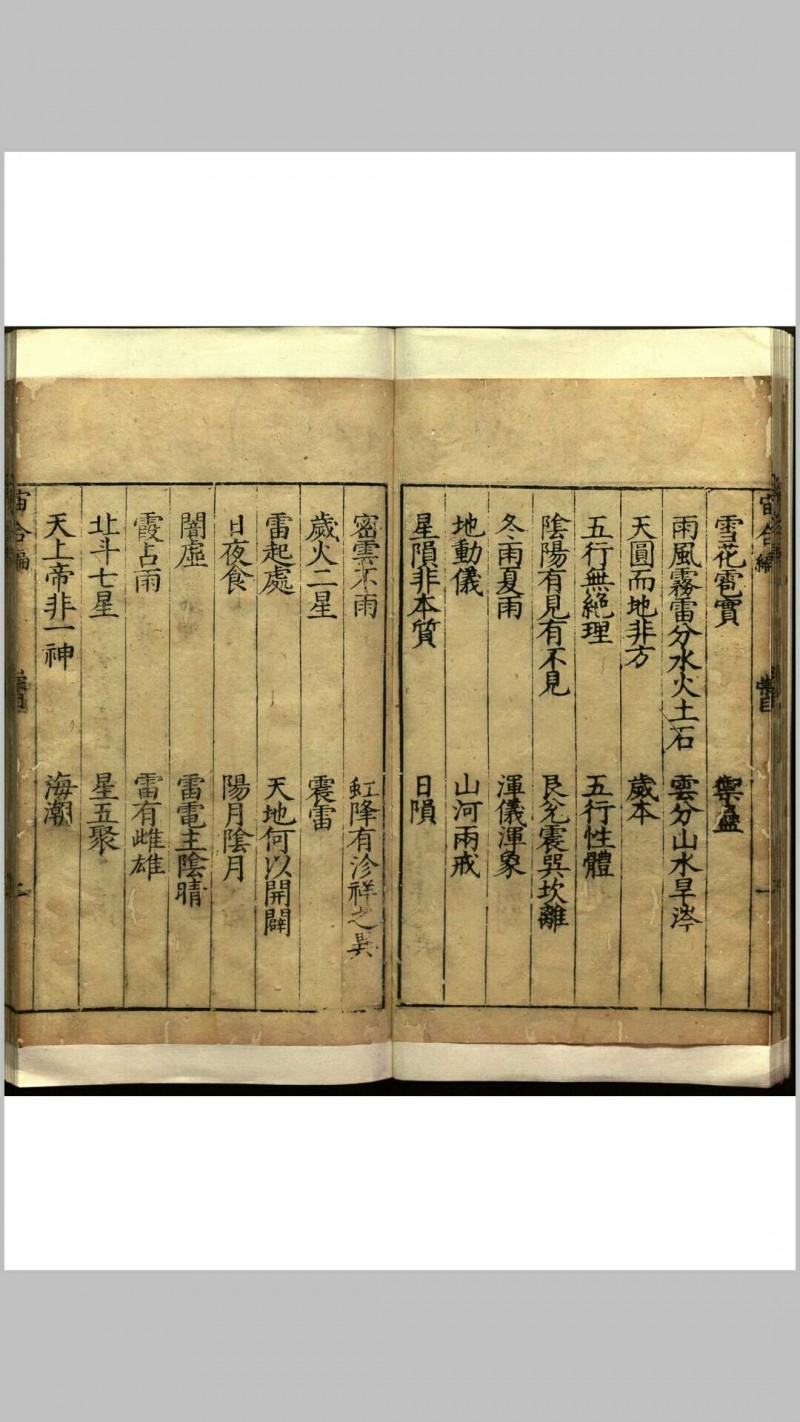 宙合編
雪花雹實 禦盗
雨風霧雷分水火土石 雲分山水旱涔
天圓而地非方 歲本
五行無絕理 五行性體
陰陽有見有不見 艮兊震巽坎離
冬雨夏雨 渾儀渾象
地動儀 山河兩戒
星隕非本質 日隕
密雲不雨 虹降有沴祥之異
歲火二星 震雷
雷起處 天地何以開闢
日夜食 陽月陰月
闇虛 雷電主陰晴
霞占雨 雷有雌雄
北斗七星 星五聚
天上帝非一神 海潮
宙合編